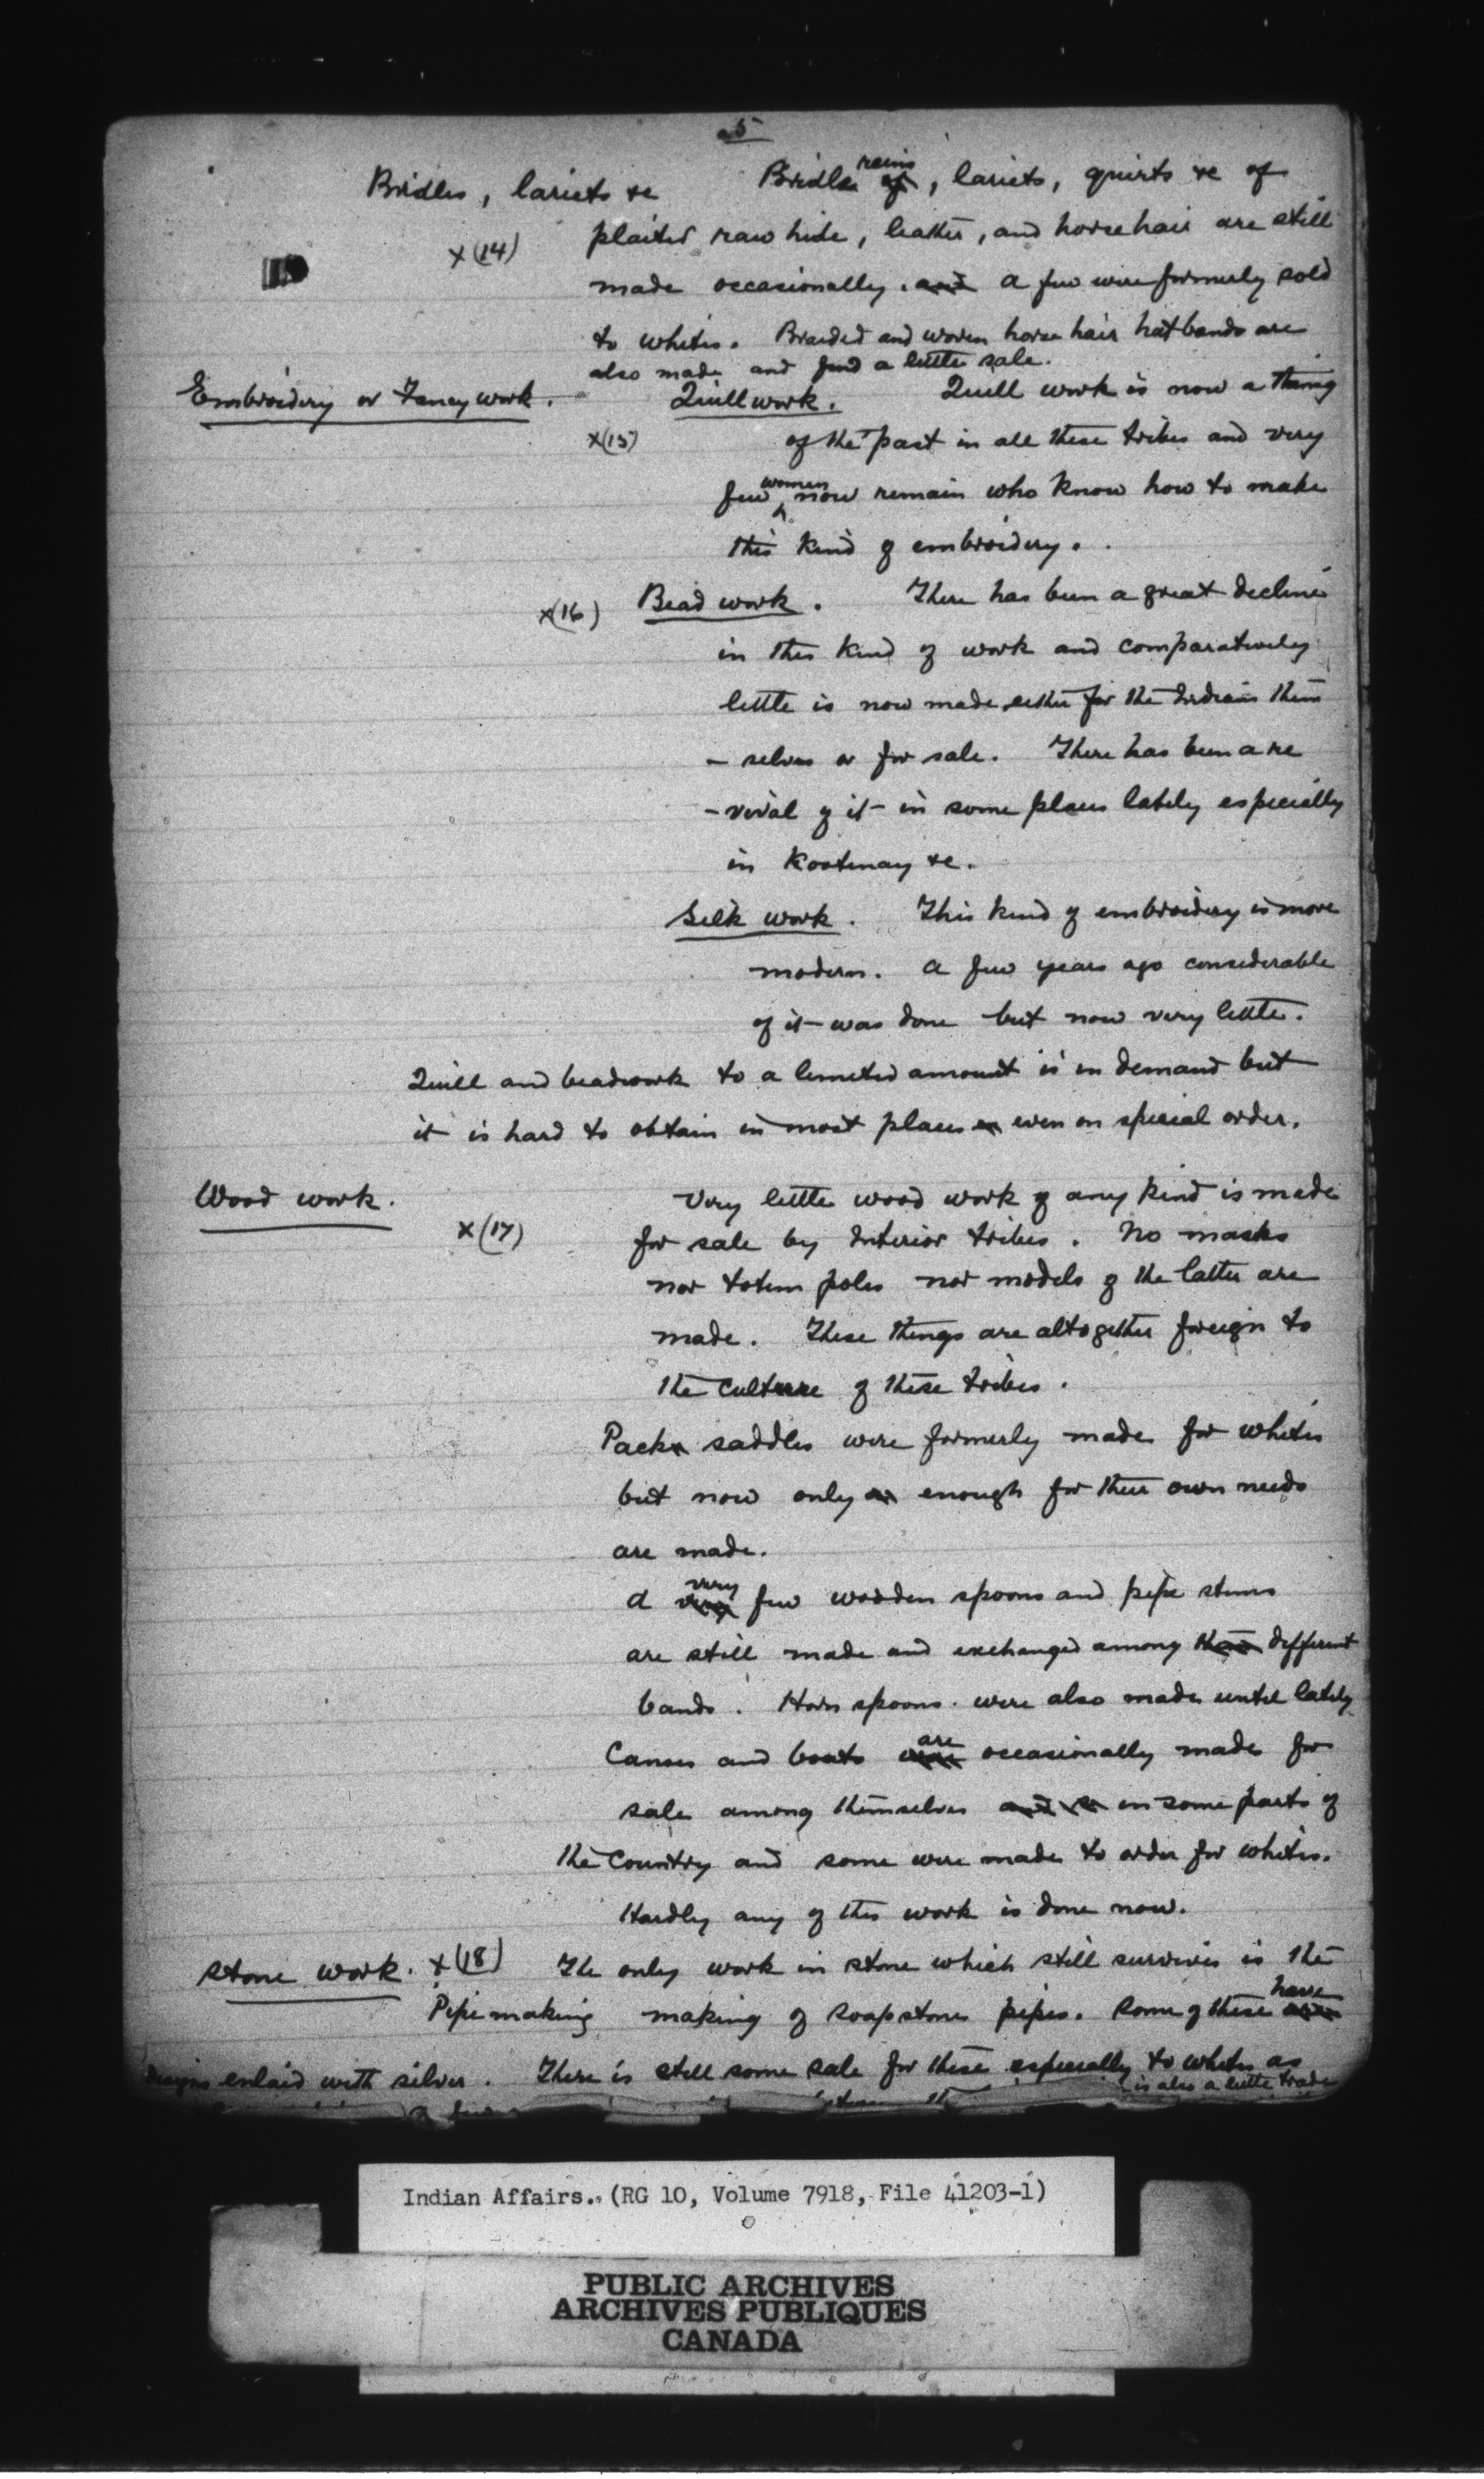 5
Bridles, lariets &c Bridle reins, lariets, quirts &c of
x(14) plaited raw hide, leather, and horsehair are still
made occasionally. and a few were formerly sold
to whites. Braided and woven horse hair hat bands are
also made and find a little sale.
Embroidery or Fancy work. Quill work. Quill work is now a thing
x(15) of the past in all these tribes and very
few women now remain who know how to make
this kind of embroidery.
x(16) Bead work. There has been a great decline
in this kind of work and comparatively
little is now made either for the Indians them
- selves or for sale. There has been a re
- vival of it in some places lately especially
in Kootenay &c.
Silk work. This kind of embroidery is more
modern. A few years ago considerable
of it was done but now very little.
Quill and beadwork to a limited amount is in demand but
it is hard to obtain in most places even on special order.
Wood work. Very little wood work of any kind is made
x(17) for sale by Interior tribes. No masks
nor totem poles nor models of the latter are
made. These things are altogether foreign to
the culture of these tribes.
Pack saddles were formerly made for whites
but now only enough for their own needs
are made.
A very few wooden spoons and pipe stems
are still made and exchanged among different
bands. Horn spoons were also made until lately.
Canoes and boats are occasionally made for
sale among themselves in some parts of
the Country and some were made to order for whites.
Hardly any of this work is done now.
Stone work. x(18) The only work in stone which still survives is the
Pipe making making of soapstone pipes. Some of these have
designs enlaid with silver. There is still some sale for these especially to whites as
is also a little trade
Indian Affairs. (RG 10, Volume 7918, File 41203-1)
PUBLIC ARCHIVES
ARCHIVES PUBLIQUES
CANADA